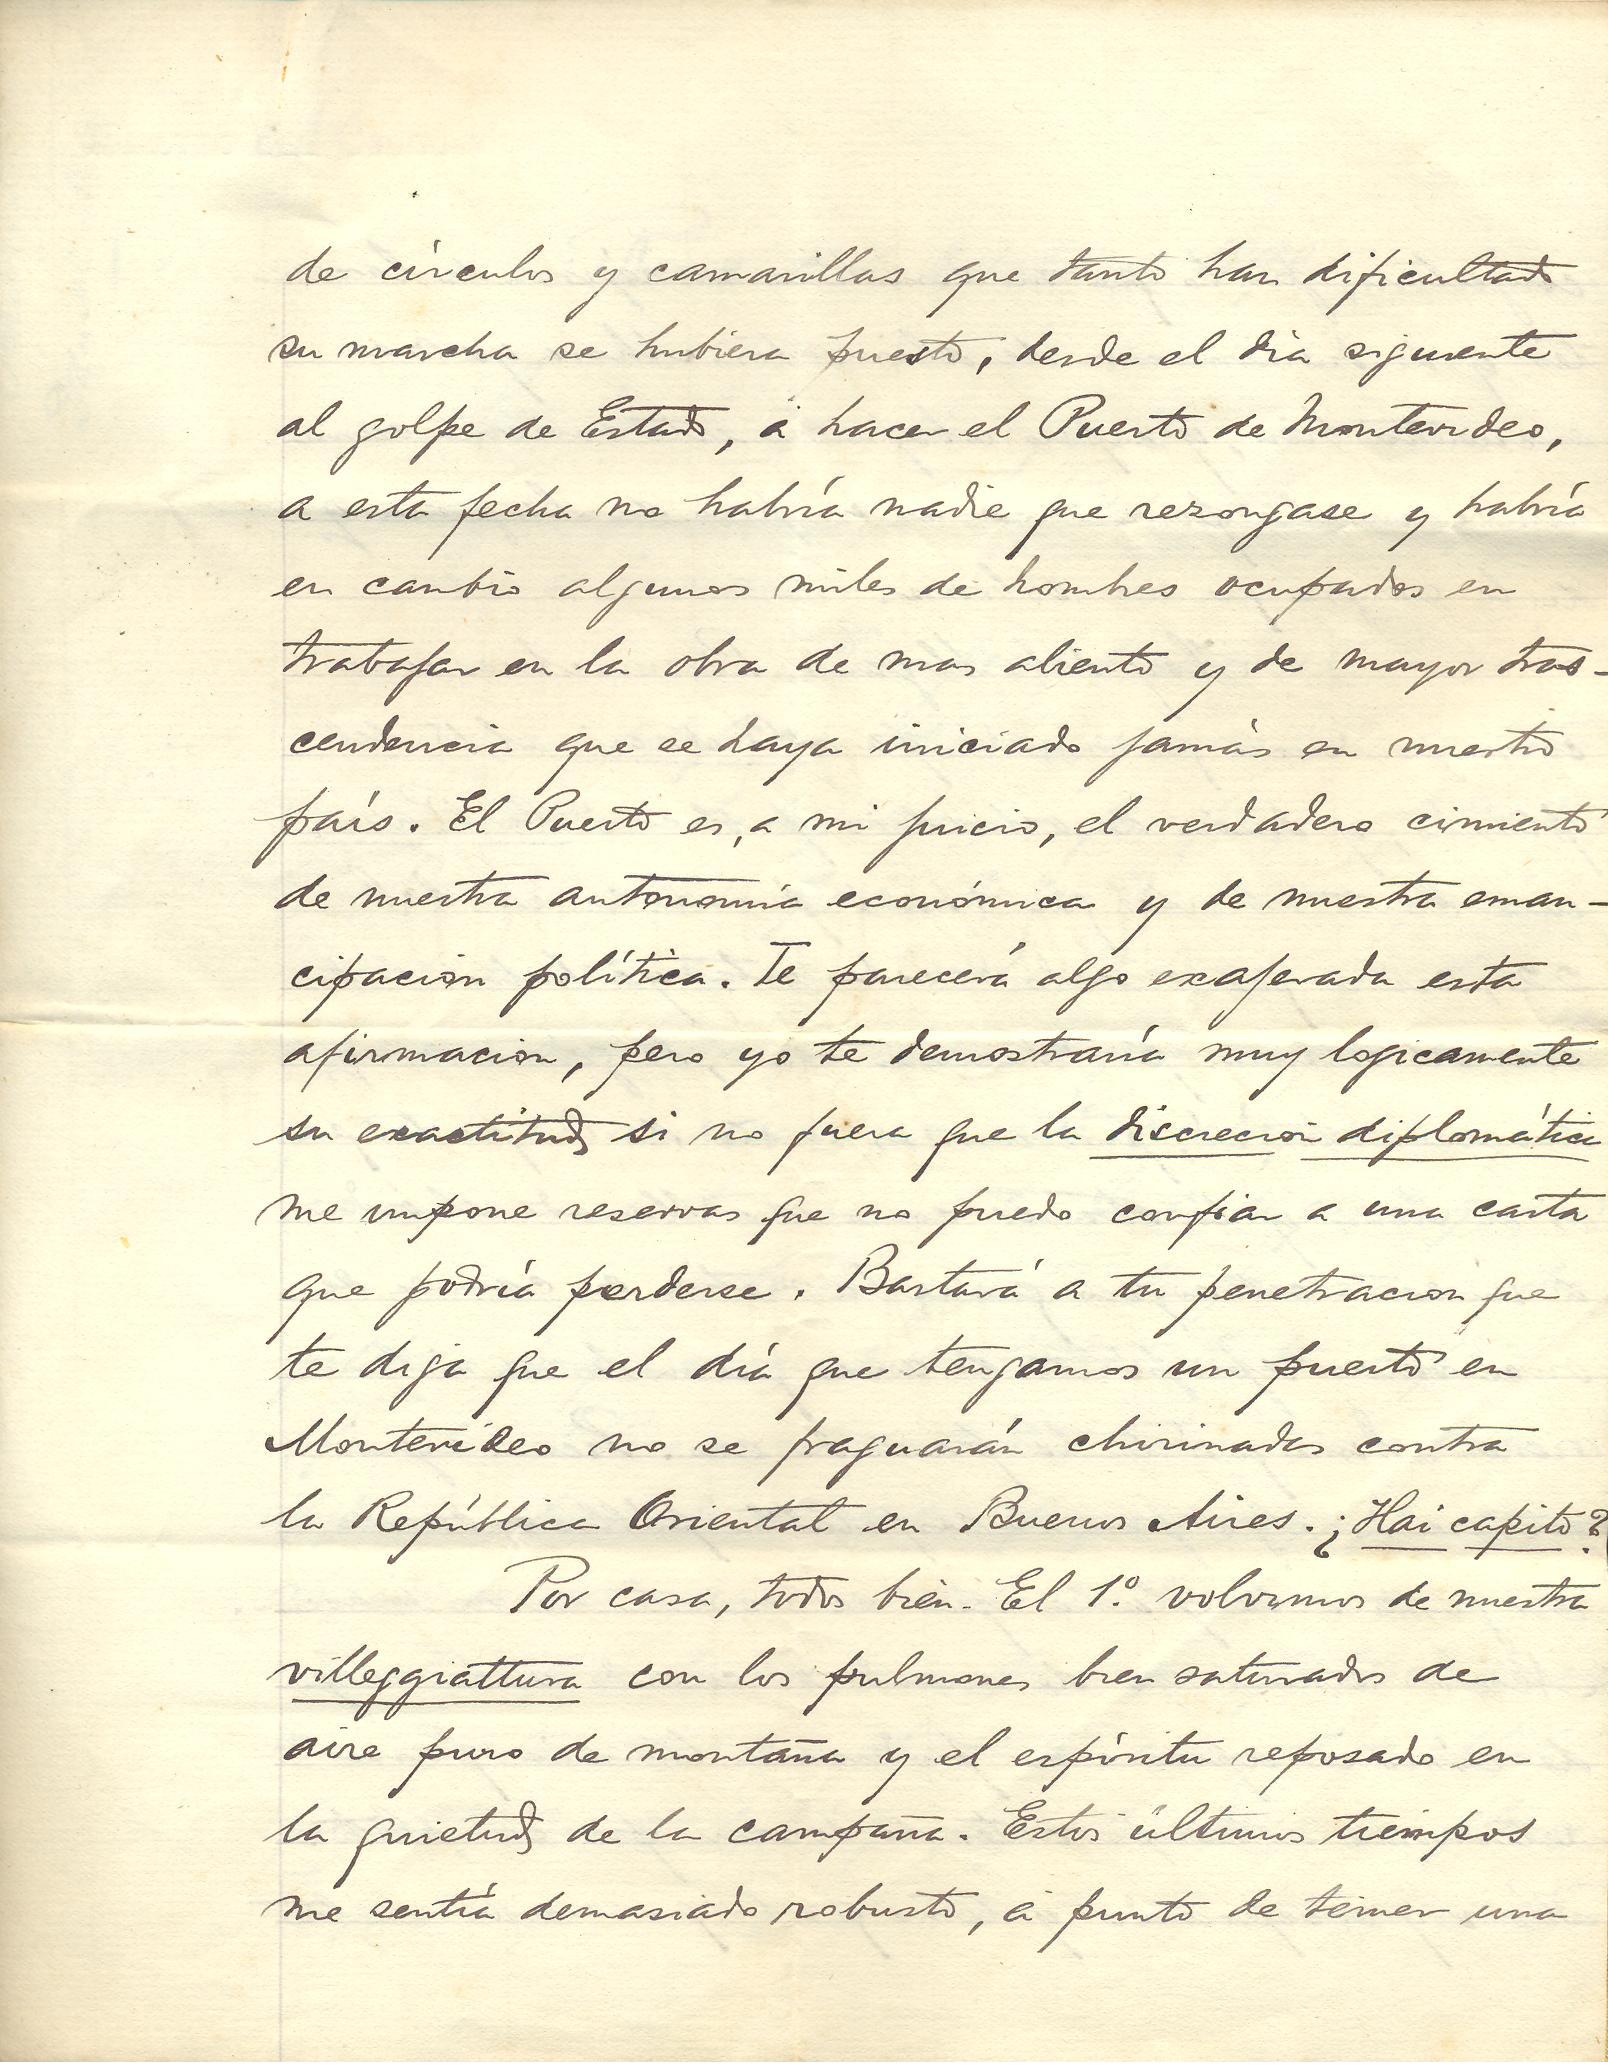 de círculos y camarillas que tanto han dificultado
su marcha se hubiera puesto, desde el dia siguiente
al golpe de Estado, á hacer el Puerto de Montevideo,
a esta fecha no habría nadie que rezongase y habría
en cambio algunos miles de hombres ocupados en
trabajar en la obra de mas aliento y de mayor tras-
cendencia que se haya iniciado jamás en nuestro
país. El Puerto es, a mi juicio, el verdadero cimiento
de nuestra autonomía económica y de nuestra eman-
cipacion política. Te parecerá algo exajerada esta
afirmacion, pero yo te demostraría muy logicamente
su exactitud si no fuera que la discrecion diplomática
me impone reservas que no puedo confiar a una carta
que podría perderse. Bastará a tu penetracion que
te diga que el día que tengamos un puerto en
Montevideo no se fraguarán chirinadas contra
la República Oriental en Buenos Aires. ¿Hai capito?
Por casa, todos bien. El 1.º volvimos de nuestra
villeggiattura con los pulmones bien saturados de
aire puro de montaña y el espíritu reposado en
la quietud de la campaña. Estos últimos tiempos
me sentía demasiado robusto, á punto de temer una